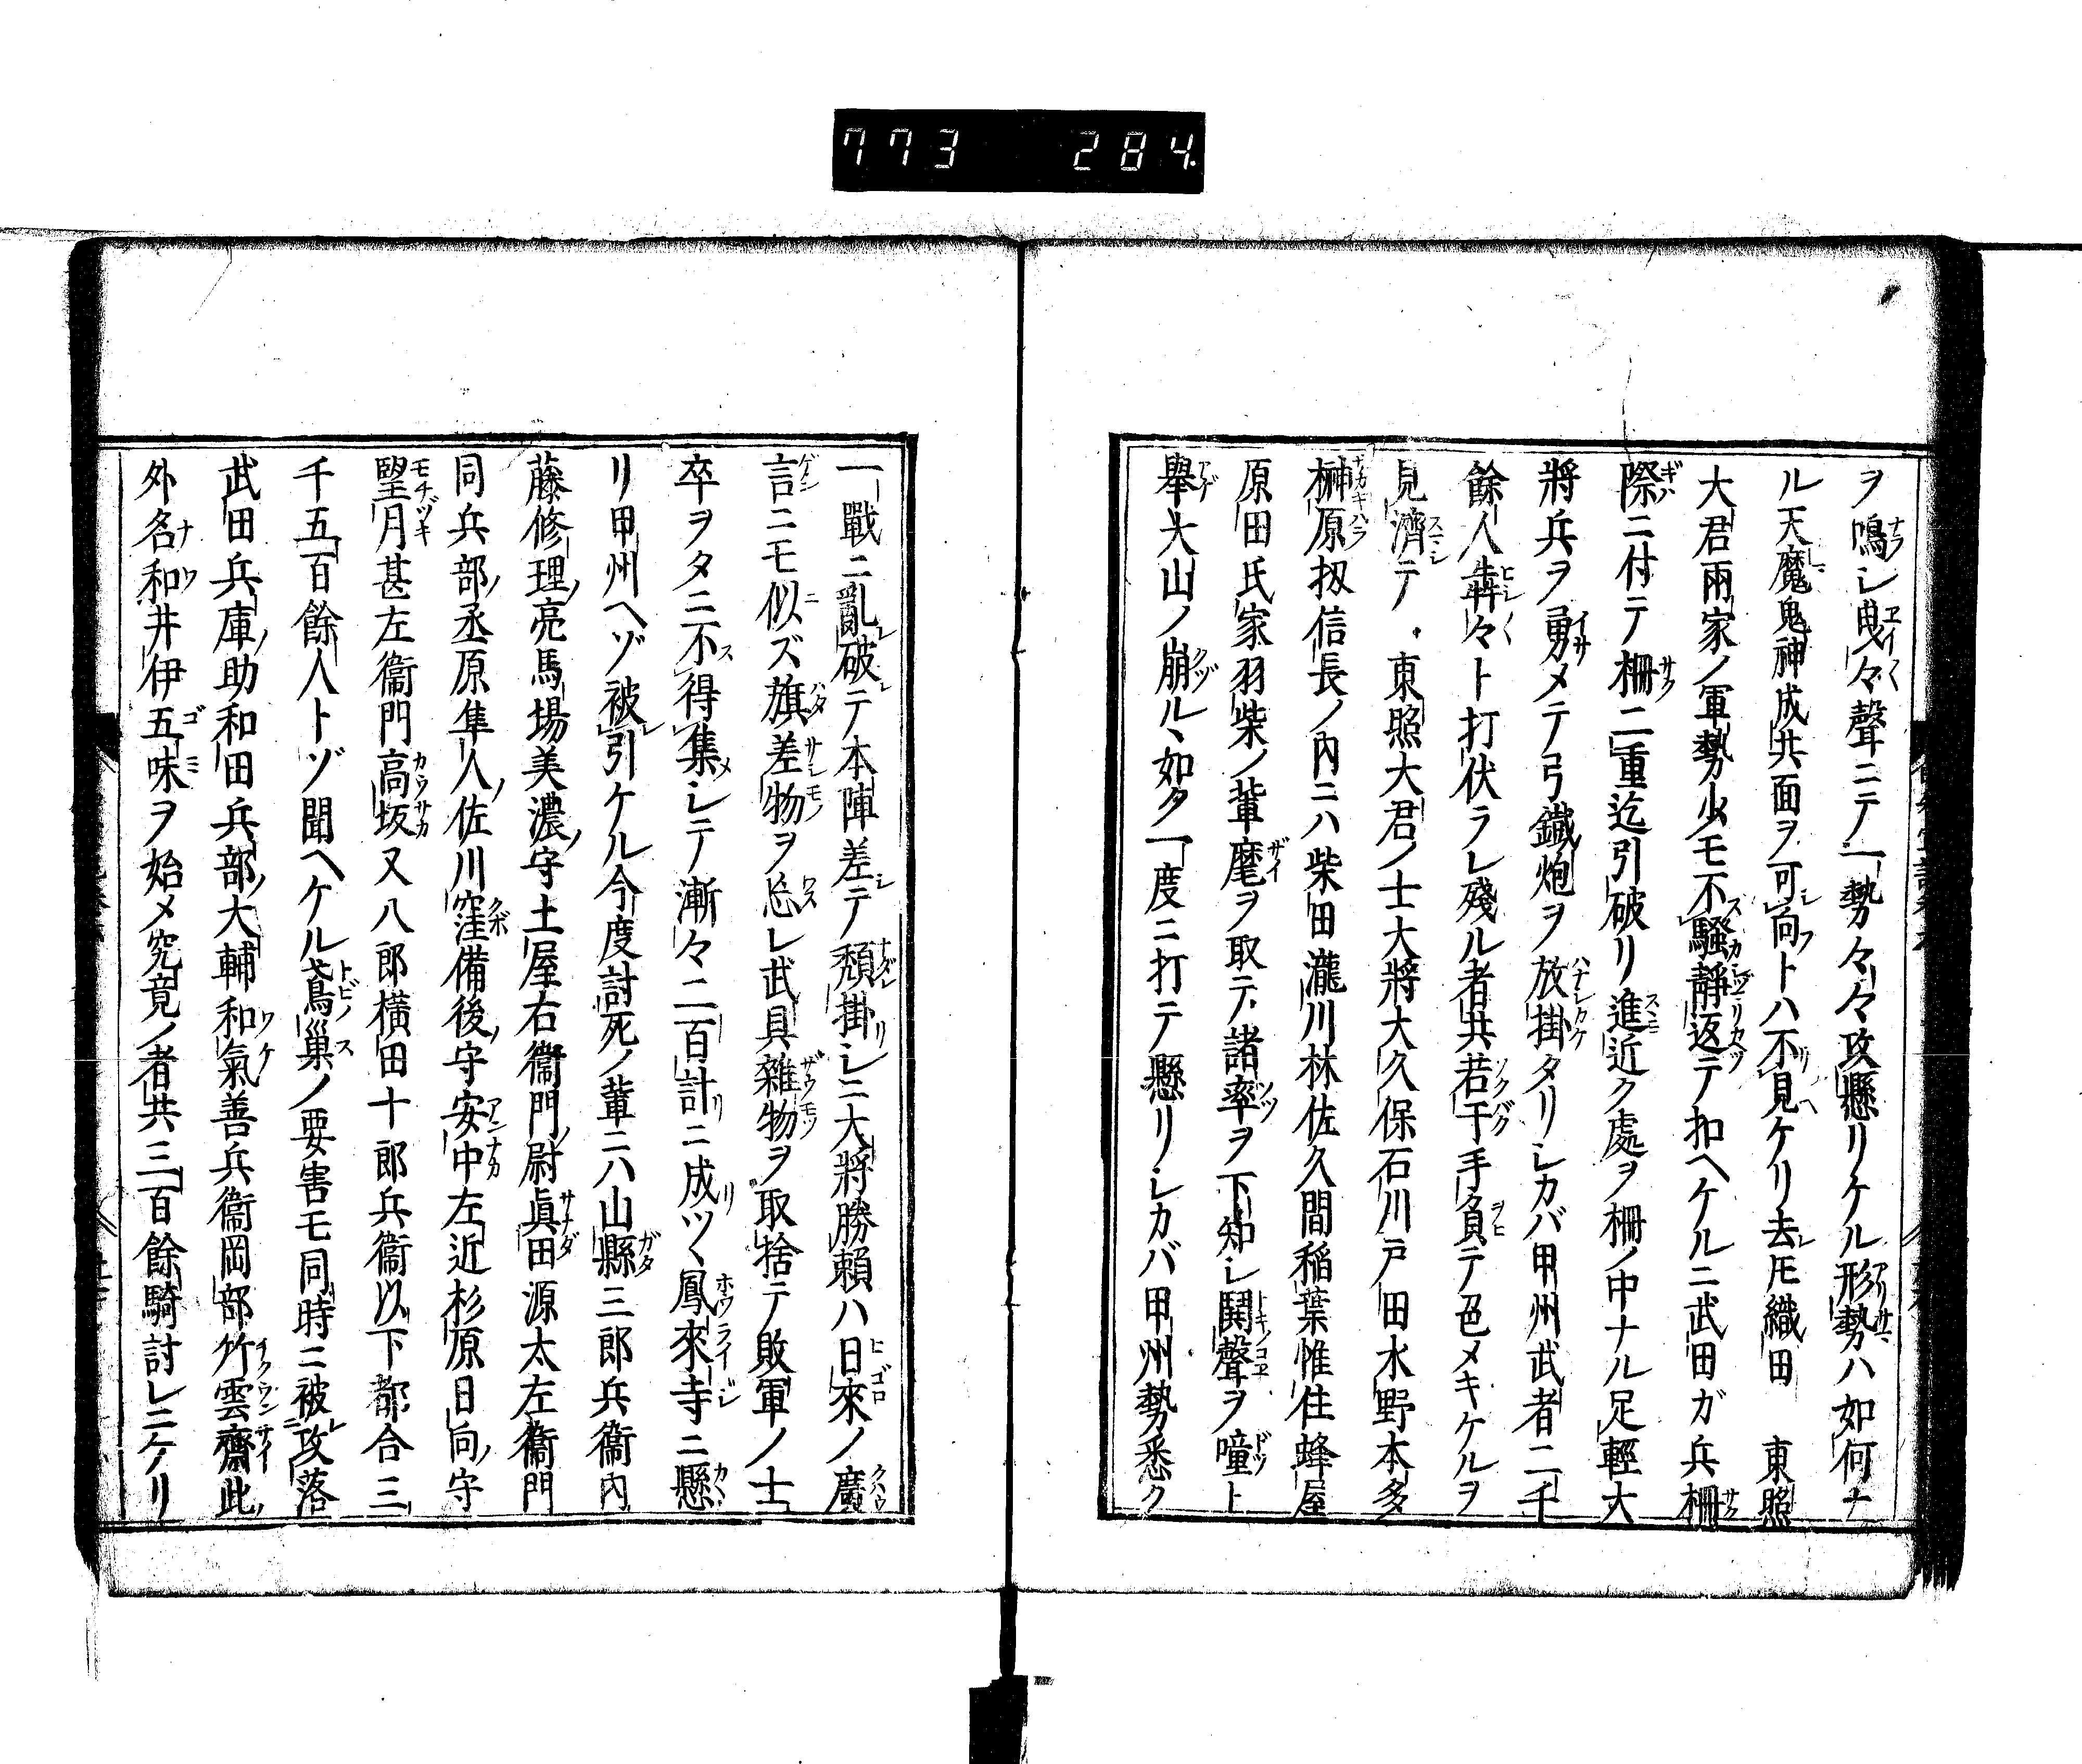 773 284
ヲ鳴シ曳々聲ニテ一勢々々攻懸リケル形勢ハ如何ナ
ル天魔鬼神成共面ヲ可向トハ不見ケリ去𪜈織田 東照
大君兩家ノ軍勢少モ不騷靜返テ扣ヘケルニ武田ガ兵柵
際ニ付テ柵二重迄引破リ進近ク處ヲ柵ノ中ナル足輕大
將兵ヲ勇メテ弓鐵炮ヲ放掛タリシカバ甲州武者二千
餘人犇々ト打伏ラレ殘ル者共若干手負テ色メキケルヲ
見濟テ 東照大君ノ士大將大久保石川戸田水野本多
榊原扨信長ノ內ニハ柴田瀧川林佐久間稲葉惟住蜂屋
原田氏家羽柴ノ輩麾ヲ取テ諸率ヲ下知シ鬨聲ヲ噇ト
舉大山ノ崩ルヽ如ク一度ニ打テ懸リシカバ甲州勢悉ク
一戰ニ亂破テ本陣差テ頽掛シニ大將勝頼ハ日來ノ廣
言ニモ似ズ旗差物ヲ忘レ武具雜物ヲ取捨テ敗軍ノ士
卒ヲタニ不得集シテ漸々二百計ニ成ツヽ鳳來寺ニ懸
リ甲州ヘゾ被引ケル今度討死ノ輩ニハ山縣三郎兵衞內
藤修理亮馬場美濃守土屋右衞門尉眞田源太左衞門
同兵部丞原隼人佐川窪備後守安中左近杉原日向守
望月甚左衞門高坂又八郎橫田十郎兵衞以下都合三
千五百餘人トゾ聞ヘケル鳶巢ノ要害モ同時ニ被攻落
武田兵庫助和田兵部大輔和氣善兵衞岡部竹雲齋此
外名和井伊五味ヲ始メ究竟ノ者共三百餘騎討レニケリ